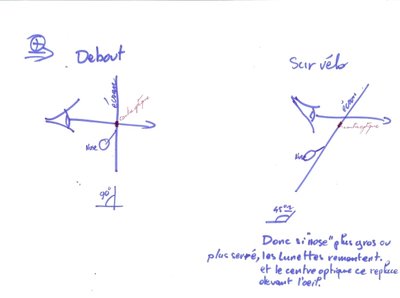 Debout
Sur vélo
écran
centre optique
Nose
90°
écran
centre optique
Nose
45°
Donc si "nose" plus gros ou
plus serré, les lunettes remontent.
et le centre optique ce replace
devant l'oeil.